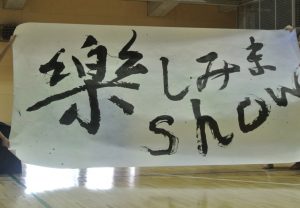 楽しみま
show